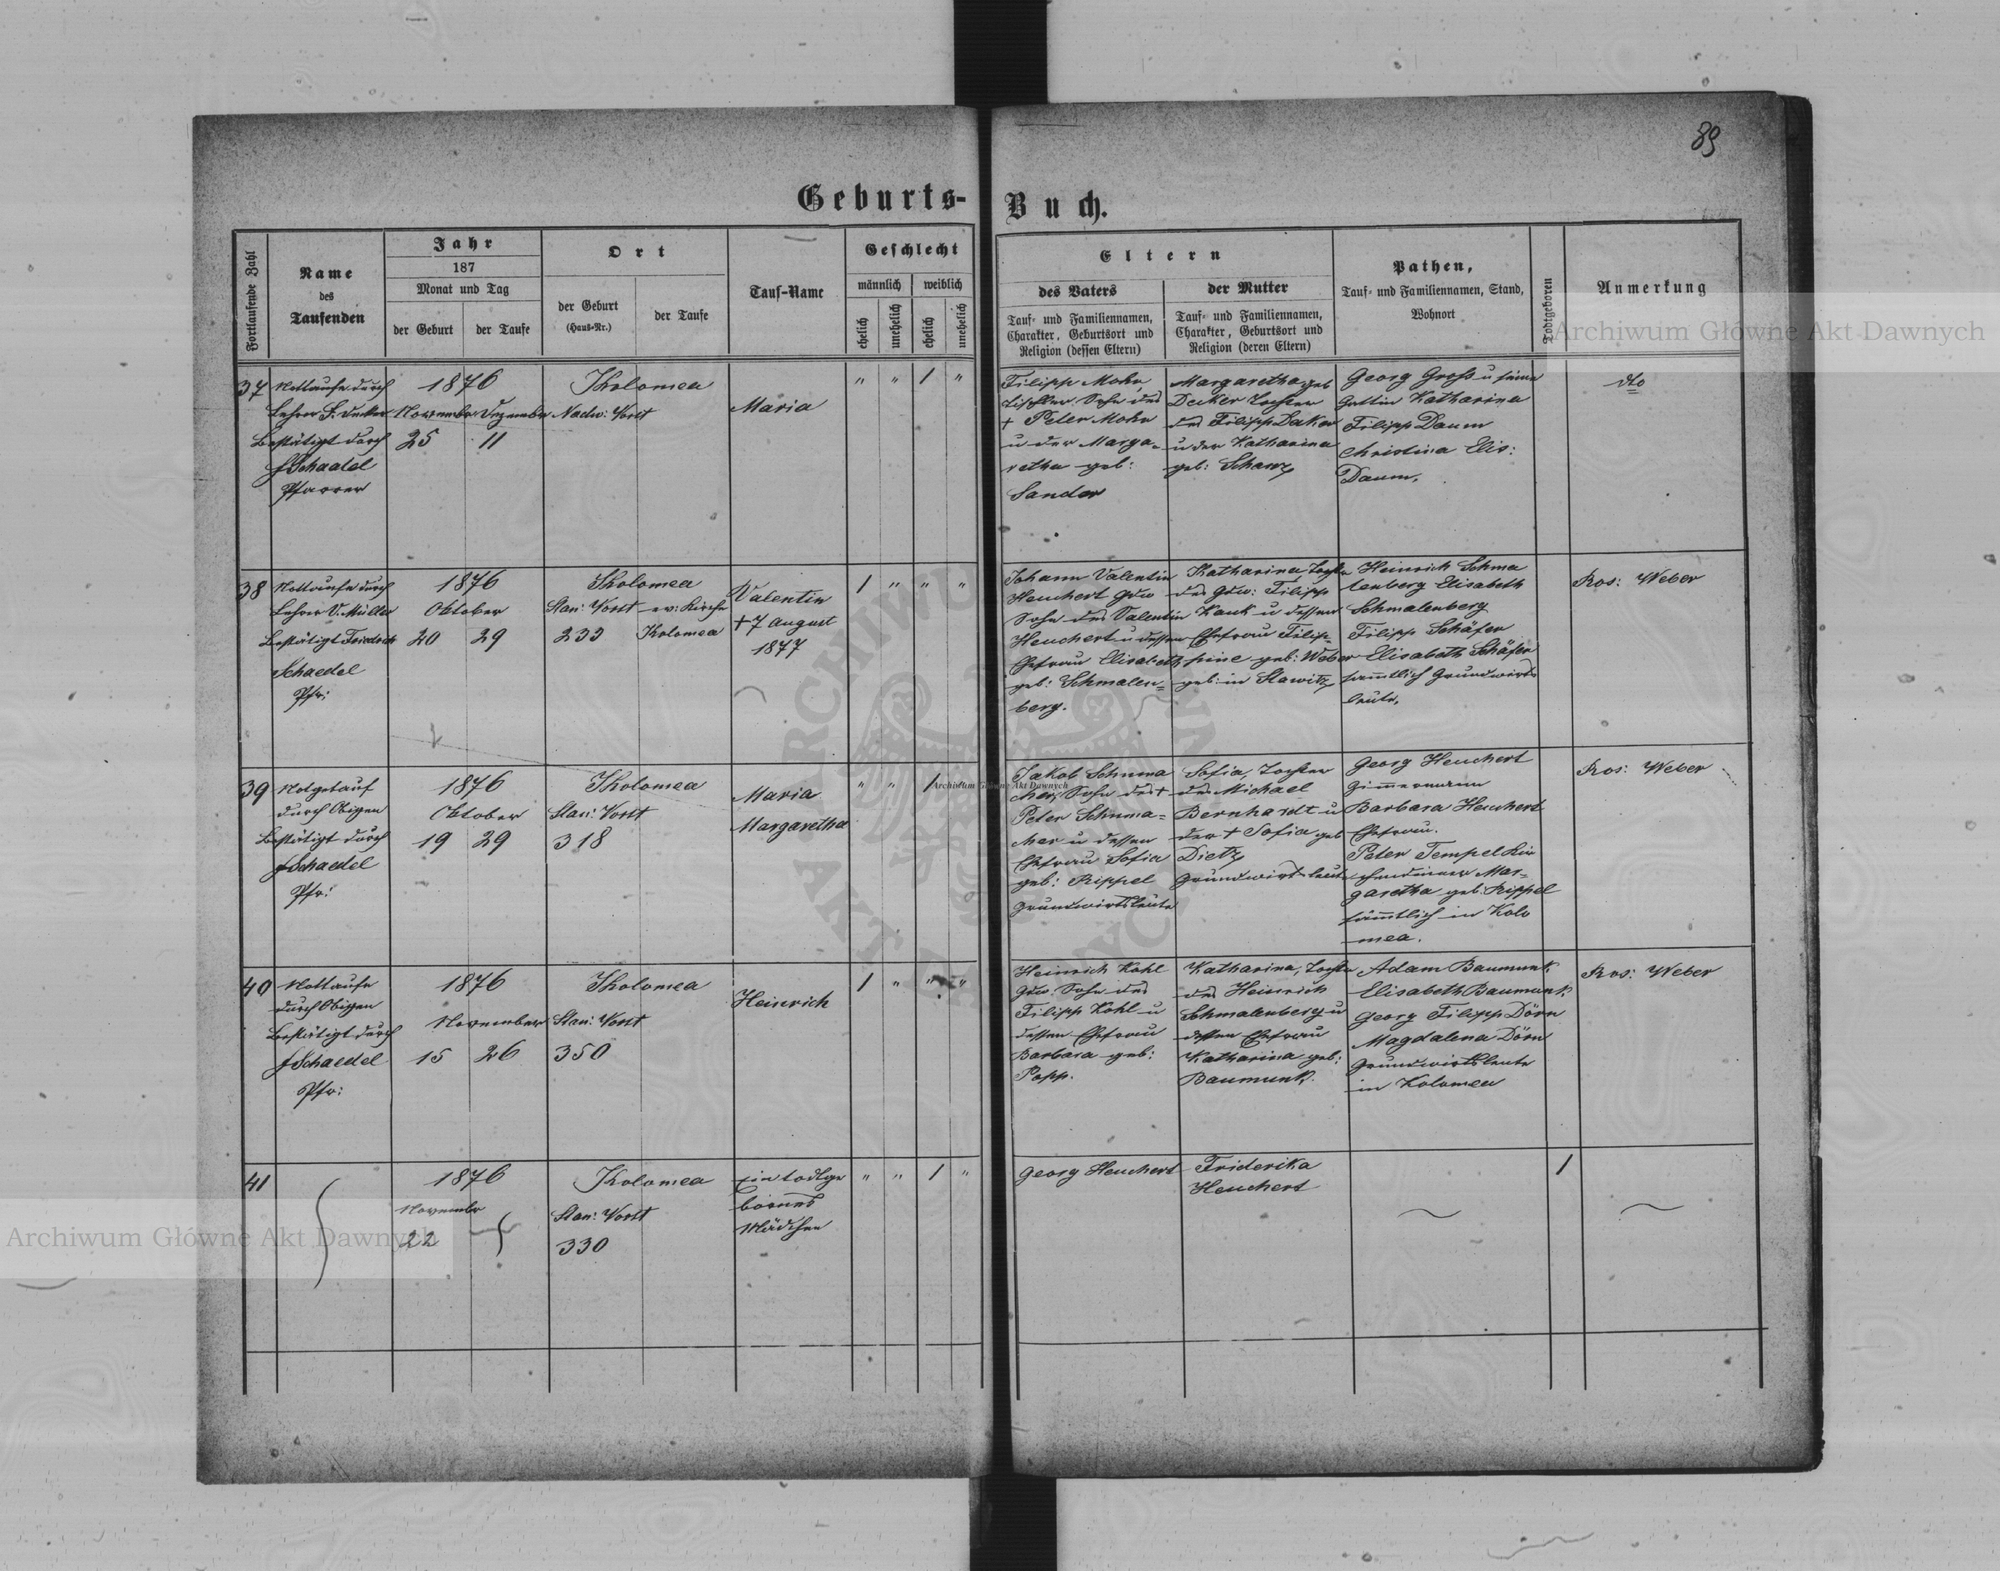 89
Geburts-Buch.
Fortlaufende Zahl
Name
des
Taufenden
Jahr
187
Monat und Tag
der Geburt
der Taufe
Ort
der Geburt
(Haus-Nr.)
der Taufe
Tauf-Name
Geschlecht
männlich
weiblich
ehelich
unehelich
ehelich
unehelich
Eltern
des Vaters
Tauf- und Familiennamen,
Charakter, Geburtsort und
Religion (dessen Eltern)
der Mutter
Tauf- und Familiennamen,
Charakter, Geburtsort und
Religion (deren Eltern)
Pathen,
Tauf- und Familiennamen, Stand,
Wohnort
Todtgeboren
Anmerkung
37
Nottaufe durch
Lehrer F. Decker
Bestätigt durch
Schaedel
Pfarrer
1876
November Dezember
25 11
Kolomea
Nadw: Vorst
Maria
" " / "
Filipp Mohr,
Tischler Sohn des
+ Peter Mohr
u der Marga-
retha geb:
Sander
Margaretha geb
Decker Tochter
des Filipp Decker
u der Katharina
geb: Scharz
Georg Gross u seine
Gattin Katharina
Filipp Daum
Christina Elis:
Daum.
dto
38
Nottaufe durch
Lehrer V. Müller
Bestätigt Friedrich
Schaedel
Pfr:
1876
Oktober
20 29
Kolomea
Stan: Vorst ev: Kirche
233 Kolomea
Valentin
+ 7 August
1877
/ " " "
Johann Valentin
Heuchert Gdw
Sohn des Valentin
Heuchert u dessen
Ehefrau Elisabeth
geb: Schmalen-
berg.
Katharina Tochter
des Gdw: Filipp
Kauk u dessen
Ehefrau Filip-
pine geb: Weber
geb: in Slawitz
Heinrich Schma
lenberg Elisabeth
Schmalenberg
Filipp Schäfer
Elisabeth Schäfer
sämtlich Grundwirts
leute.
Ros: Weber
39
Notgetauf
durch Obigen
Bestätigt durch
Schaedel
Pfr:
1876
Oktober
19 29
Kolomea
Stan: Vorst
318
Maria
Margaretha
" " /
Jakob Schuma
cher, Sohn des +
Peter Schuma-
cher u dessen
Ehefrau Sofia
geb: Rippel
Grundwirtsleute
Sofia, Tochter
des Michael
Bernhardt u
der + Sofia geb
Dietz
Grundwirtsleute
Georg Heuchert
Zimmermann
Barbara Heuchert
Ehefrau.
Peter Tempel Kir
chendiener Mar-
garetha geb: Rippel
sämmtlich in Kolo
mea.
Ros: Weber
40
Nottaufe
durch Obigen
Bestätigt durch
Schaedel
Pfr:
1876
November
15 26
Kolomea
Stan: Vorst
350
Heinrich
/ " " "
Heinrich Kohl
Gdw: Sohn des
Filipp Kohl u
dessen Ehefrau
Barbara geb:
Popp.
Katharina, Tochter
des Heinrich
Schmalenberg u
dessen Ehefrau
Katharina geb:
Baumunk.
Adam Baumunk
Elisabeth Baumunk
Georg Filipp Dörn
Magdalena Dörn
Grundwirtsleute
in Kolomea
Ros: Weber
41
1876
November
22
Kolomea
Stan: Vorst
330
Ein todtge
bornes
Mädchen
" " / "
Georg Heuchert
Friderika
Heuchert
/
Archiwum Główne Akt Dawnych
Archiwum Główne Akt Dawnych
Archiwum Główne Akt Dawnych